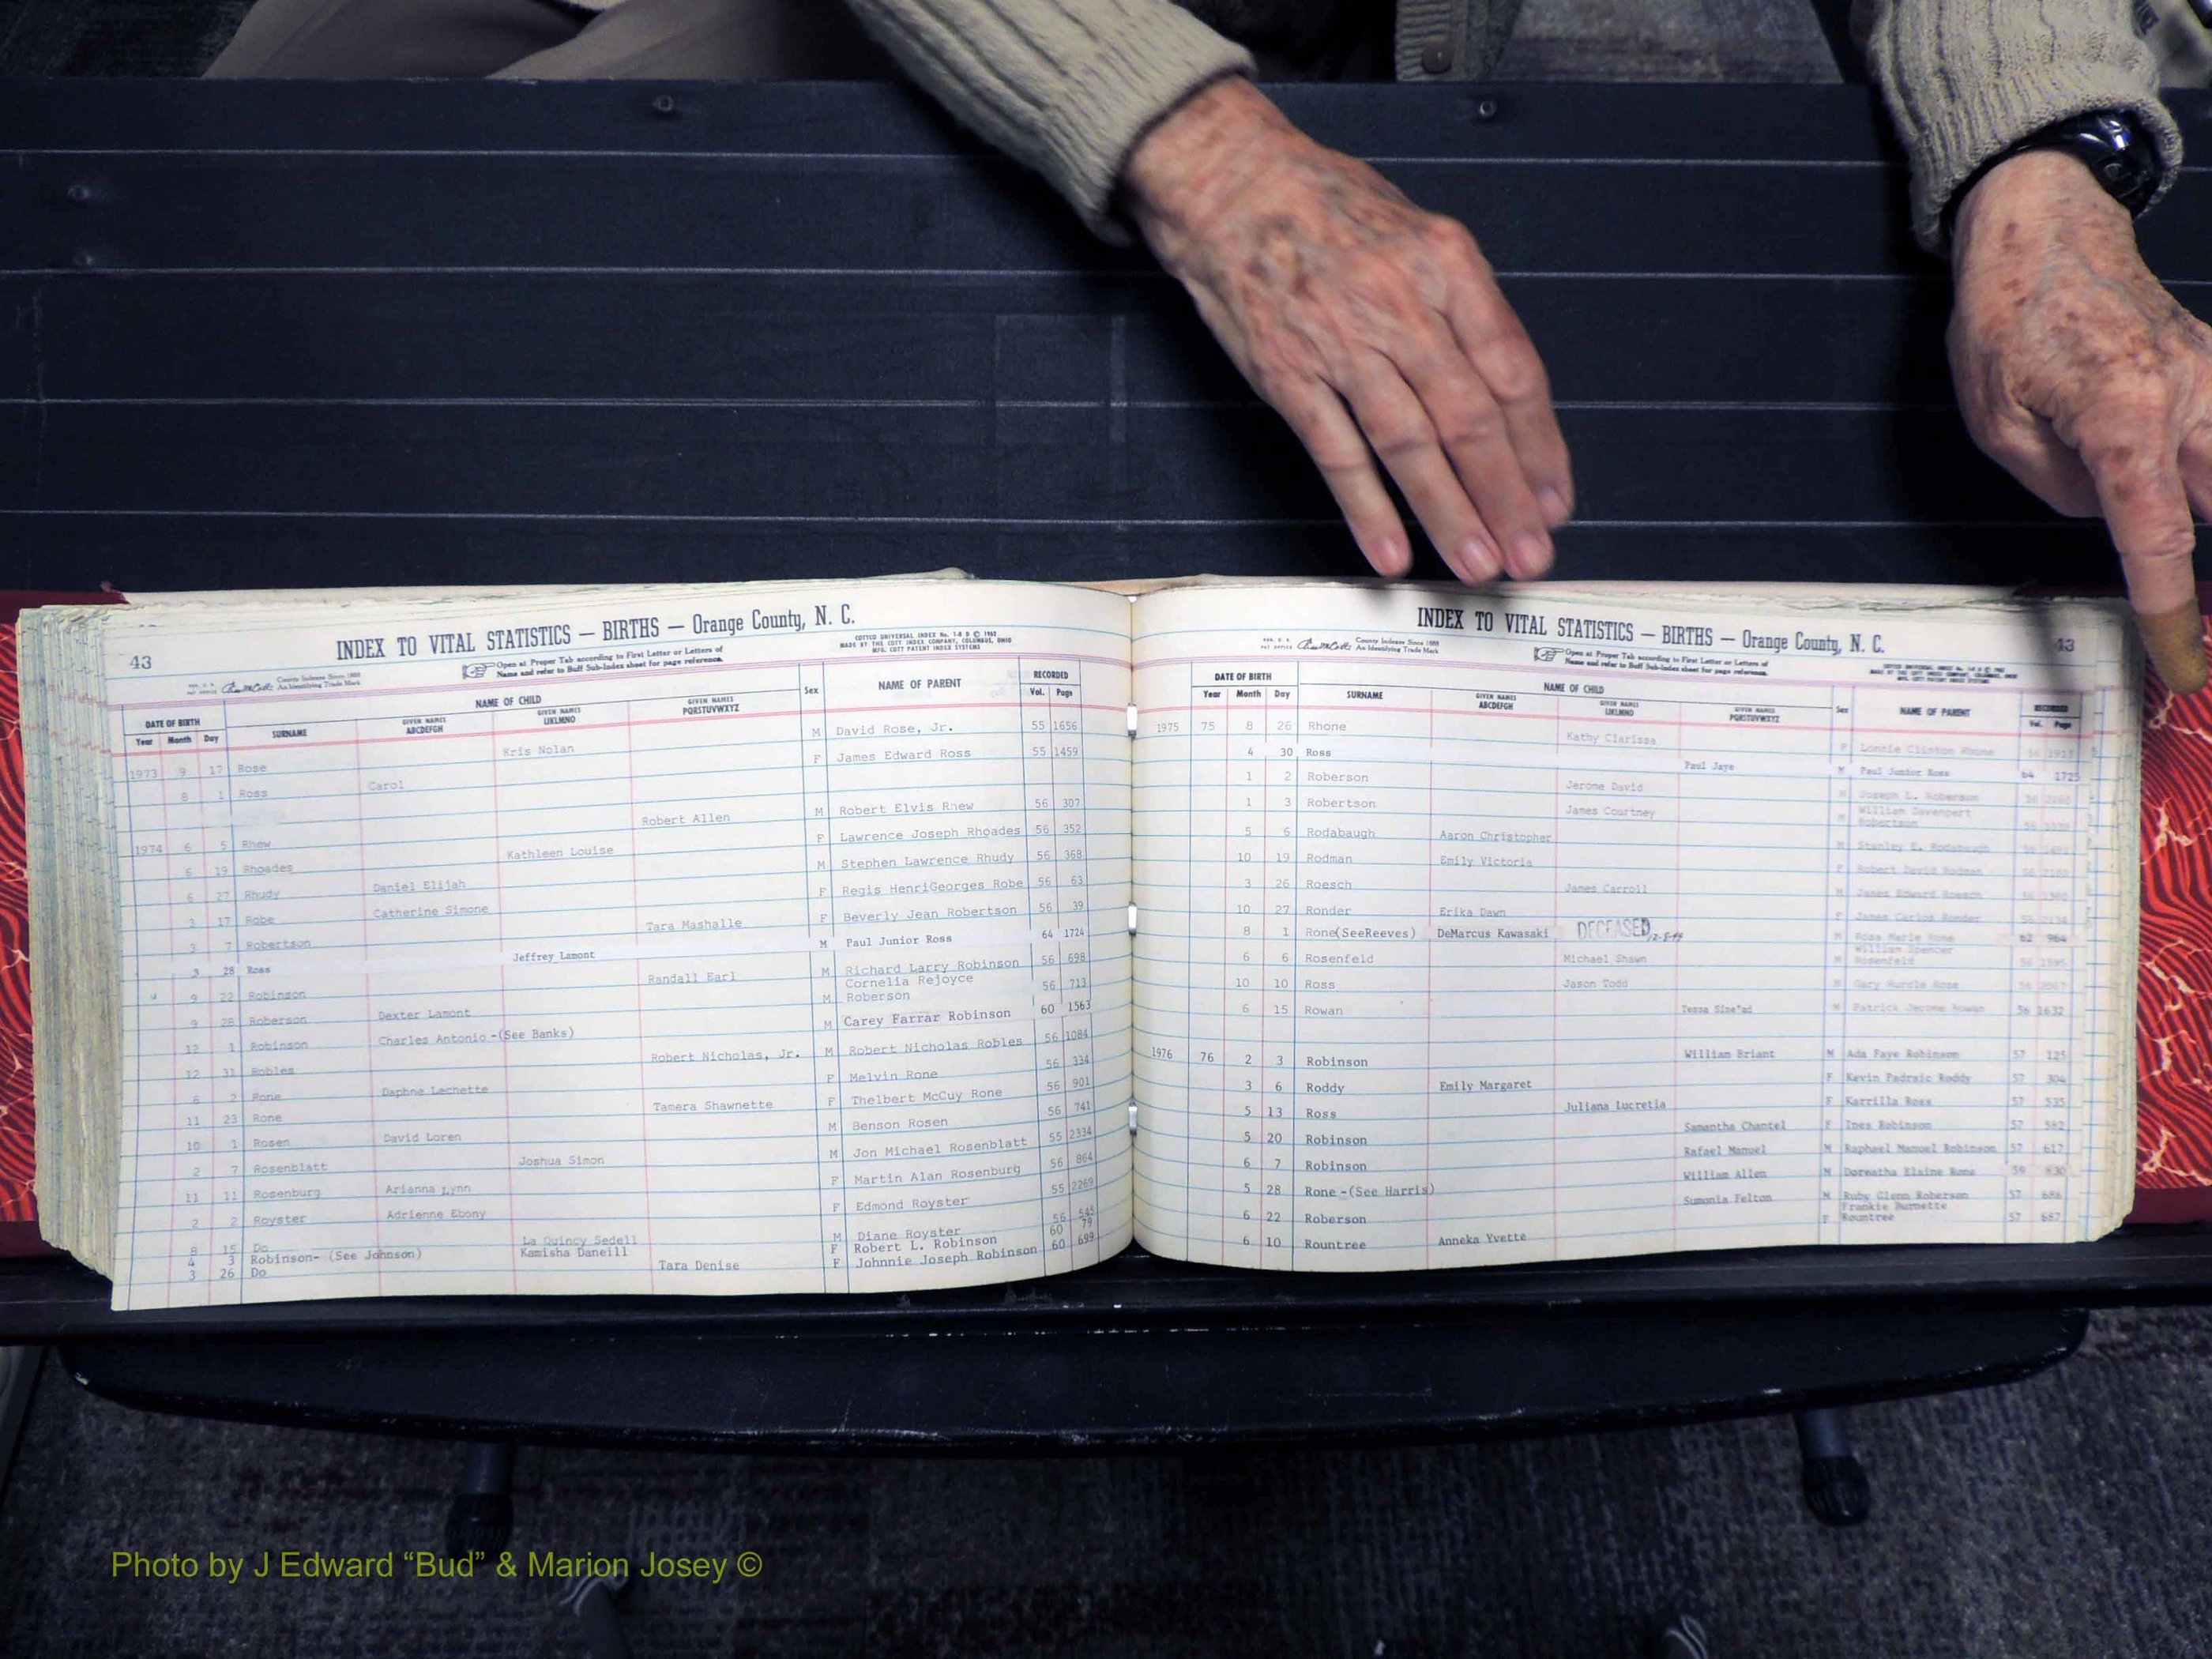 43
INDEX TO VITAL STATISTICS — BIRTHS — Orange County, N. C.
COTTCO UNIVERSAL INDEX No. 1-8 D © 1962
MADE BY THE COTT INDEX COMPANY, COLUMBUS, OHIO
MFG. COTT PATENT INDEX SYSTEMS
County Indexes Since 1888
An Identifying Trade Mark
Open at Proper Tab according to First Letter or Letters of
Name and refer to Buff Sub-Index sheet for page reference.
DATE OF BIRTH NAME OF CHILD Sex NAME OF PARENT RECORDED
Year Month Day SURNAME GIVEN NAMES ABCDEFGH GIVEN NAMES IJKLMNO GIVEN NAMES PQRSTUVWXYZ Vol. Page
1973 9 17 Rose Kris Nolan M David Rose, Jr. 55 1656
8 1 Ross Carol F James Edward Ross 55 1459
1974 6 5 Rhew Robert Allen M Robert Elvis Rhew 56 307
6 19 Rhoades Kathleen Louise F Lawrence Joseph Rhoades 56 352
6 27 Rhudy Daniel Elijah M Stephen Lawrence Rhudy 56 368
3 17 Robe Catherine Simone F Regis HenriGeorges Robe 56 63
3 7 Robertson Tara Mashalle F Beverly Jean Robertson 56 39
3 28 Ross Jeffrey Lamont M Paul Junior Ross 64 1724
9 22 Robinson Randall Earl M Richard Larry Robinson 56 698
9 28 Roberson Dexter Lamont M Cornelia Rejoyce Roberson 56 713
12 1 Robinson Charles Antonio -(See Banks) M Carey Farrar Robinson 60 1563
12 31 Robles Robert Nicholas, Jr. M Robert Nicholas Robles 56 1084
6 2 Rone Daphne Lechette F Melvin Rone 56 334
11 23 Rone Tamera Shawnette F Thelbert McCuy Rone 56 901
10 1 Rosen David Loren M Benson Rosen 56 741
2 7 Rosenblatt Joshua Simon M Jon Michael Rosenblatt 55 2334
11 11 Rosenburg Arianna Lynn F Martin Alan Rosenburg 56 864
2 2 Royster Adrienne Ebony F Edmond Royster 55 2269
8 15 Do La Quincy Sedell M Diane Royster 56 545
4 3 Robinson- (See Johnson) Kamisha Daneill F Robert L. Robinson 60 79
3 26 Do Tara Denise F Johnnie Joseph Robinson 60 699
43
INDEX TO VITAL STATISTICS — BIRTHS — Orange County, N. C.
County Indexes Since 1888
An Identifying Trade Mark
Open at Proper Tab according to First Letter or Letters of
Name and refer to Buff Sub-Index sheet for page reference.
DATE OF BIRTH NAME OF CHILD Sex NAME OF PARENT RECORDED
Year Month Day SURNAME GIVEN NAMES ABCDEFGH GIVEN NAMES IJKLMNO GIVEN NAMES PQRSTUVWXYZ Vol. Page
1975 75 8 26 Rhone Kathy Clarissa F Lonnie Clinton Rhone
4 30 Ross Paul Jaye M Paul Junior Ross 64 1725
1 2 Roberson Jerome David M Joseph L. Roberson
1 3 Robertson James Courtney M William Davenport Robertson
5 6 Rodabaugh Aaron Christopher M Stanley E. Rodabaugh
10 19 Rodman Emily Victoria F Robert David Rodman
3 26 Roesch James Carroll M James Edward Roesch
10 27 Ronder Erika Dawn F James Carlos Ronder
8 1 Rone(SeeReeves) DeMarcus Kawasaki DECEASED M Rosa Marie Rone 62 964
6 6 Rosenfeld Michael Shawn M William Spencer Rosenfeld 56 1595
10 10 Ross Jason Todd M Gary Hurdle Rose
6 15 Rowan Tessa Sine'ad Patrick Jerome Rowan 56 1632
1976 76 2 3 Robinson William Briant M Ada Faye Robinson 57 125
3 6 Roddy Emily Margaret F Kevin Padraic Roddy 57 304
5 13 Ross Juliana Lucretia F Karrilla Ross 57 535
5 20 Robinson Samantha Chantel F Ines Robinson 57 582
6 7 Robinson Rafael Manuel M Raphael Manuel Robinson 57 617
5 28 Rone -(See Harris) William Allen M Doreatha Elaine Rone 59 830
6 22 Roberson Sumonia Felton M Ruby Glenn Roberson 57 686
6 10 Rountree Anneka Yvette F Frankie Burnette Rountree 57 687
Photo by J Edward “Bud” & Marion Josey ©